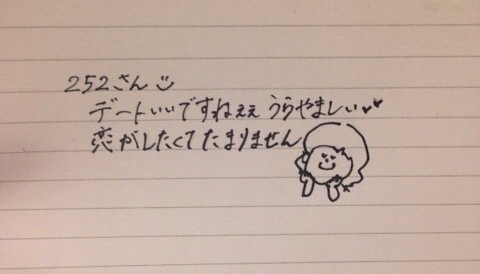 252さん
デートいいですねぇぇ うらやましい♥♥
恋がしたくてたまりません